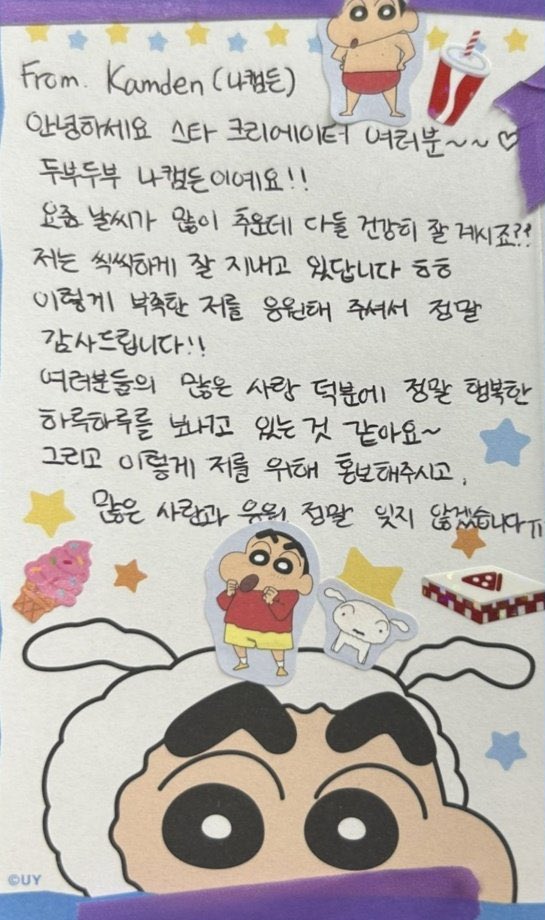 From. Kamden (나캠든)
안녕하세요 스타 크리에이터 여러분~~♡
두부두부 나캠든이예요!!
요즘 날씨가 많이 추운데 다들 건강히 잘 계시죠??
저는 씩씩하게 잘 지내고 있답니다 ㅎㅎ
이렇게 부족한 저를 응원해 주셔서 정말
감사드립니다!!
여러분들의 많은 사랑 덕분에 정말 행복한
하루하루를 보내고 있는 것 같아요~
그리고 이렇게 저를 위해 홍보해주시고,
많은 사랑과 응원 정말 잊지 않겠습니다ㅠ
©UY